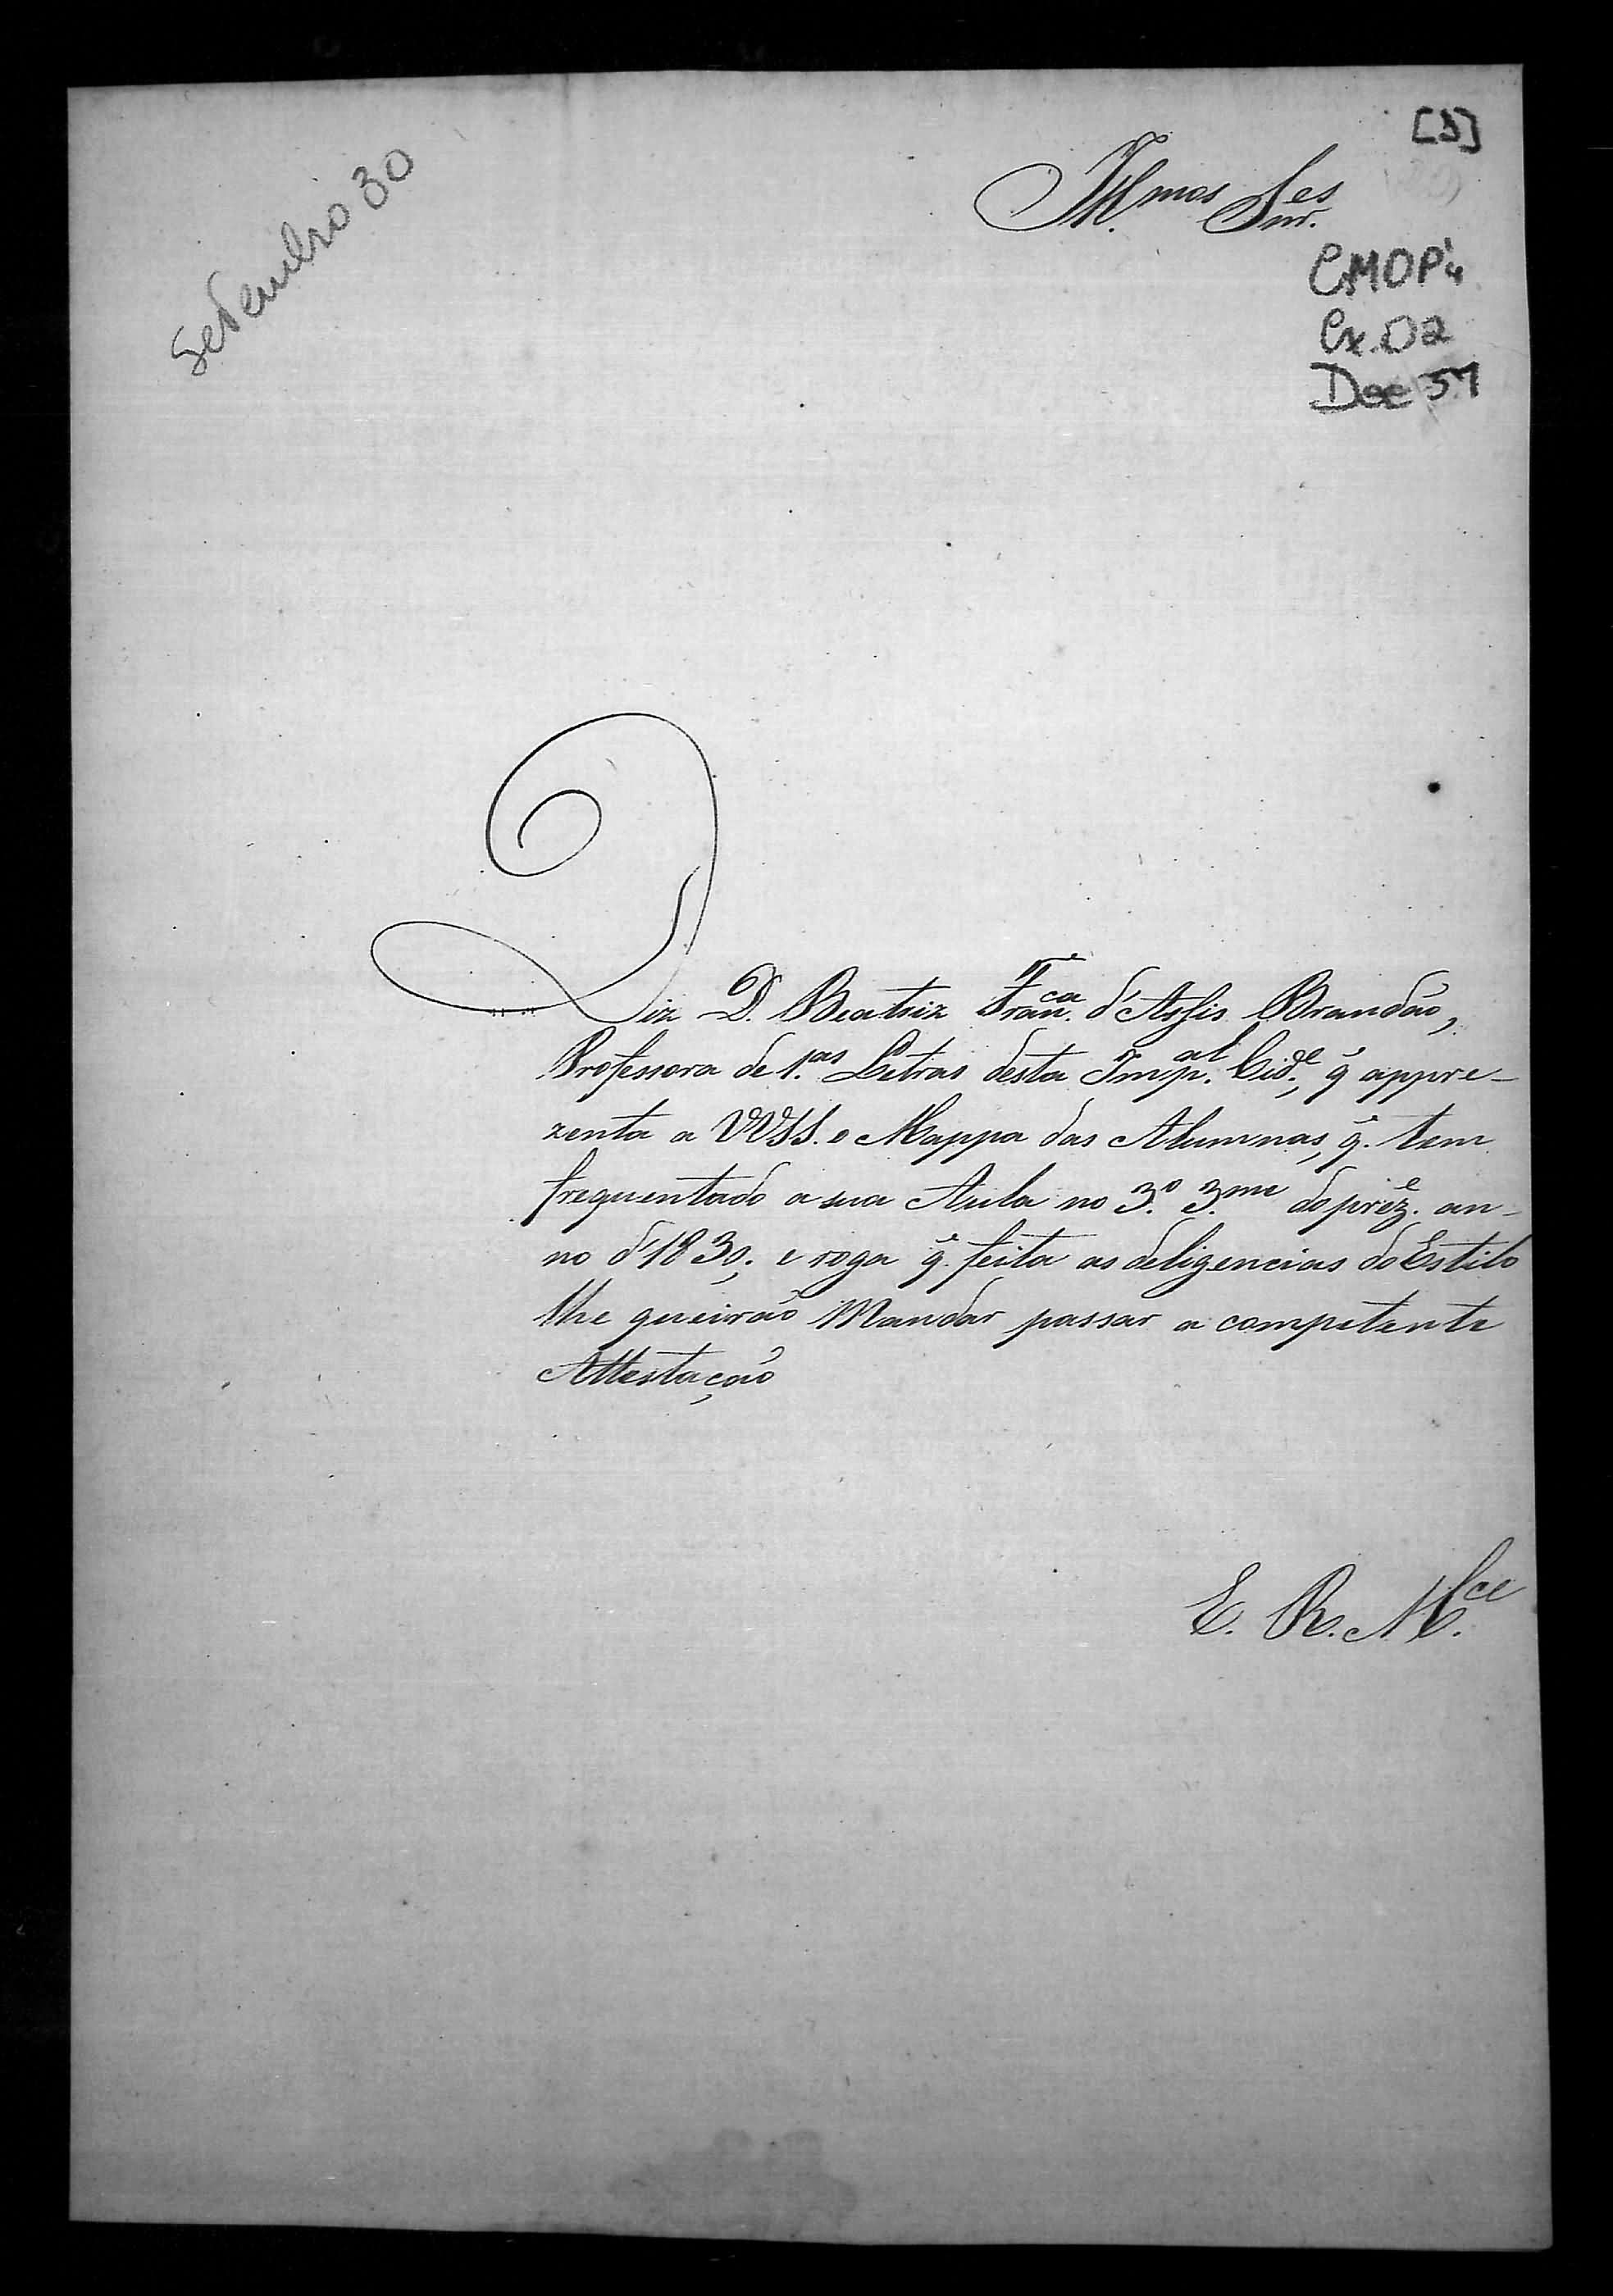 [3]
Setembro 30
Illmos. Snres.
CMOP
Cx. 02
Doc 37
Diz D. Beatriz Franca. d'Assis Brandão,
Professora de 1.as Letras desta Imp.al Cid.e, q̃ appre-
zenta a VVSS. o Mappa das Alumnas, q̃. tem
frequentado a sua Aula no 3.º 3.me do prez.e an-
no d'1830; e roga q̃. feita as deligencias do Estilo
lhe queirão Mandar passar a competente
Attestação
E. R. M.ce